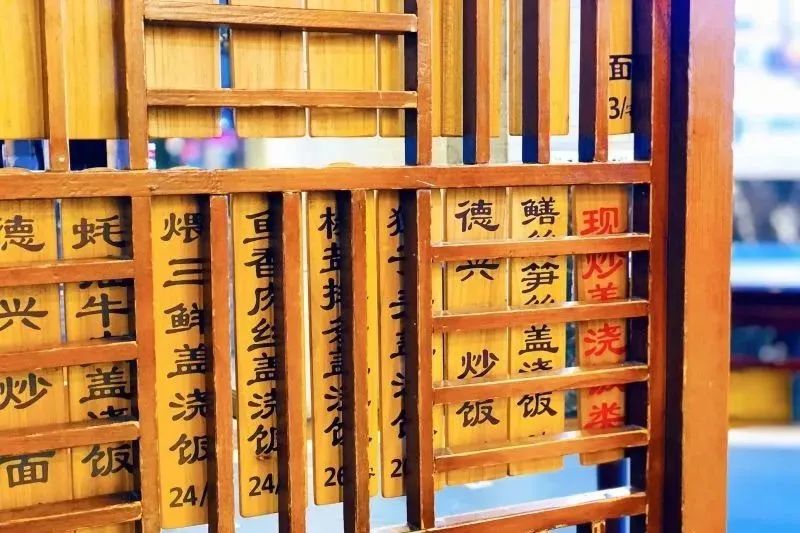 面
3/
现炒盖浇饭类
鳝丝笋丝盖浇饭
德兴炒饭
椒盐排条盖浇饭
26
鱼香肉丝盖浇饭
24/
煨三鲜盖浇饭
24/
蚝油牛盖浇饭
德兴炒面